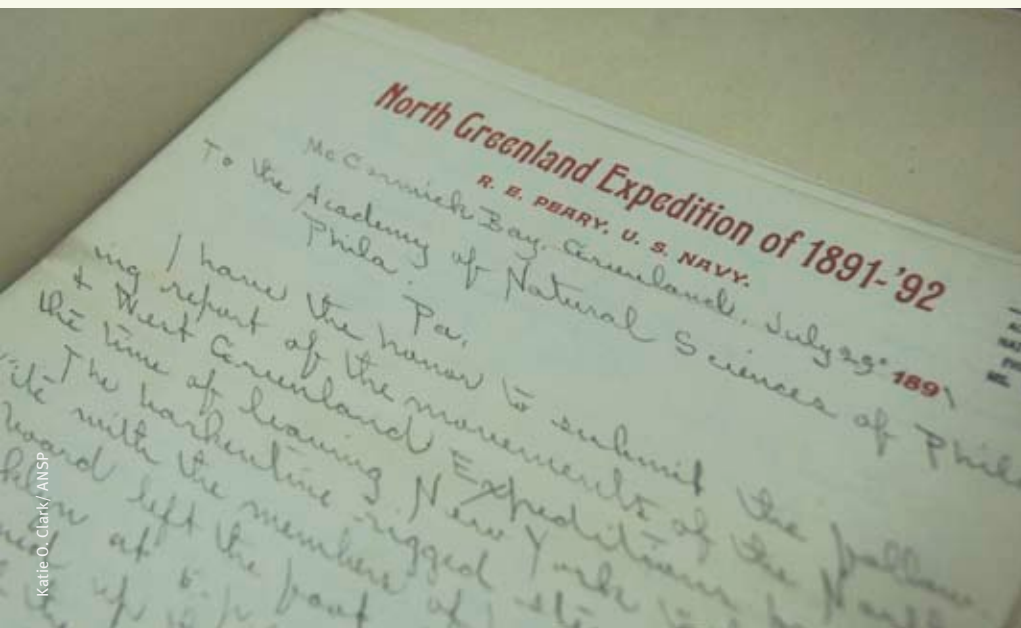 North Greenland Expedition of 1891-'92
R. E. PEARY, U. S. NAVY.
McCormick Bay, Greenland, July 29" 1891
To the Academy of Natural Sciences of Phila
Phila. Pa.
I have the honor to submit the follow-
ing report of the movements of the North
& West Greenland Expeditions
the time of leaving New York
The barkentine rigged
with the members of
board left the foot
at
Katie O. Clark/ ANSP